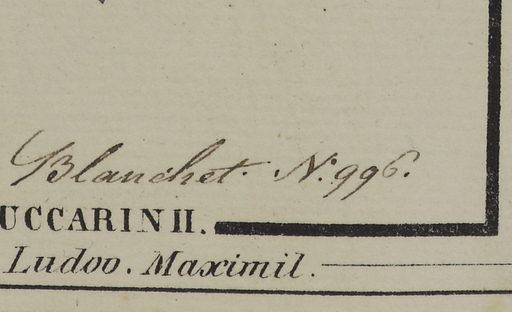 Blanchet. N. 996.
UCCARINII.
Ludov. Maximil.